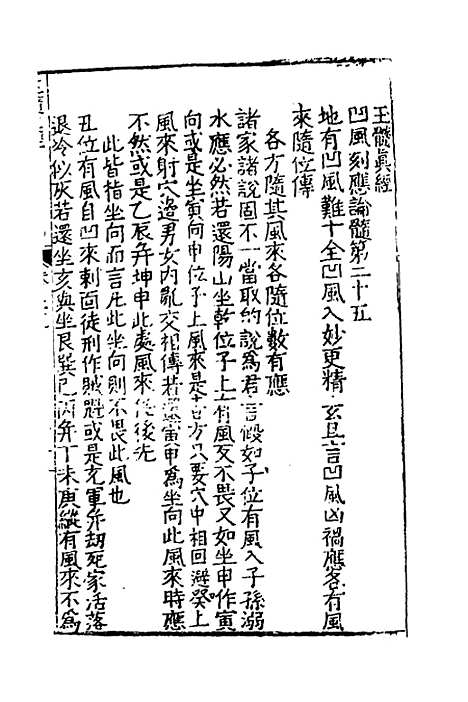 玉髓真經
凹風刻應論髓第二十五
地有凹風難十全凹風入妙更精玄且言凹風凶禍應各有風
來隨位傳
各方隨其風來各隨位數有應
諸家諸說固不一當取的說為君言假如子位有風入子孫溺
水應必然若還陽山坐乾位子上有風反不畏又如坐申作寅
向或是坐寅向申位子上風來是吉方只要穴中相回避癸上
風來射穴邊男女內亂交相傳若寅申為坐向此風來時應
不然或是乙辰并坤申此處風來後先
此皆指坐向而言凡此坐向則不畏此風也
丑位有風自凹來刺面徒刑作賊或是充軍并劫死家活落
退冷似灰若還坐亥與坐艮巽巳丙并丁未庚縱有風來不為